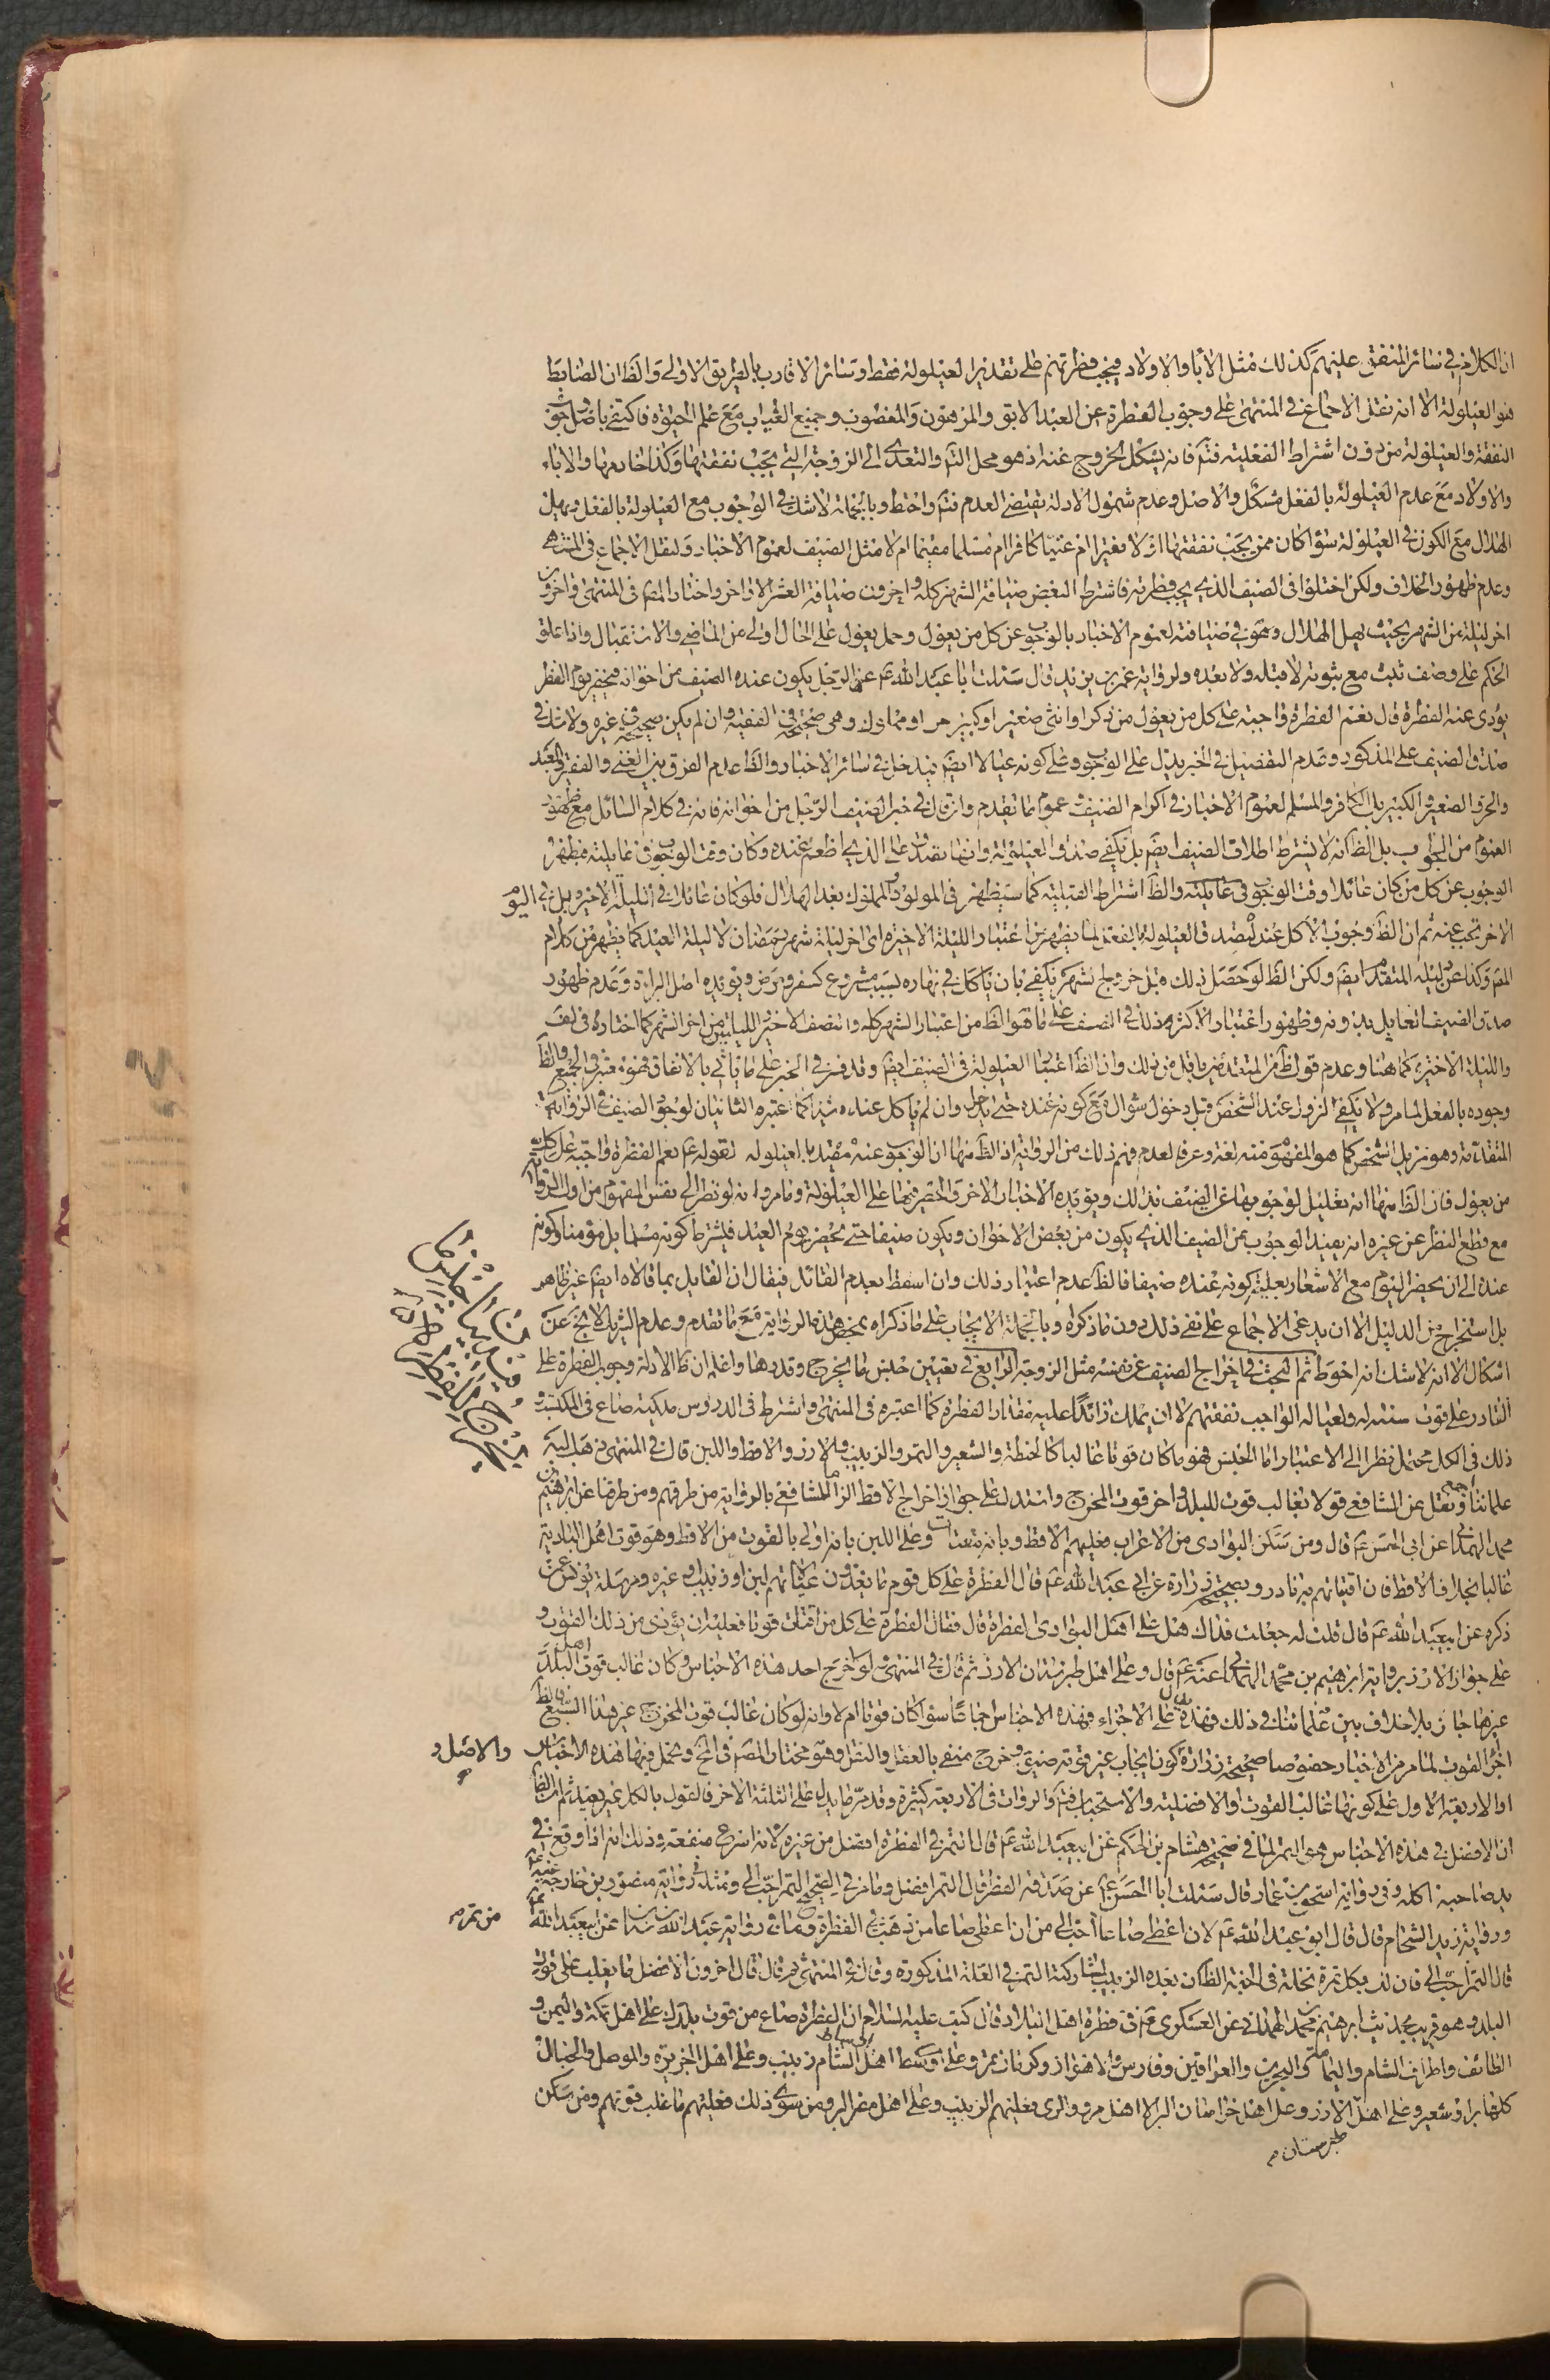 ان الكلام في سائر المنفق عليهم كذلك مثل الآباء والاولاد فيجب فطرتهم على تقدير العيلولة فقط وسائر الاقارب بالطريق الاولى والظ ان الضابط
هو العيلولة الا انه نقل الاجماع في المنتهى على وجوب الفطرة عن العبد الابق والمرهون والمغصوب وجميع الغياب مع علم الحيوة فاكتفى باصل وجوب
النفقة والعيلولة من دون اشتراط الفعلية فتم فانه يشكل الخروج عنه اذ هو محل التم والتعدي الى الزوجة التي يجب نفقتها وكذا خادمها والآباء
والاولاد مع عدم العيلولة بالفعل مشكل والاصل وعدم شمول الادلة يقتضي العدم فتم واحتط وبالجملة لا شك في الوجوب مع العيلولة بالفعل ويهل
الهلال مع الكون في العيلولة سواء كان ممن يجب نفقتها او لا فقيرا ام غنيا كافرا ام مسلما مقيما ام لا مثل الضيف لعموم الاخبار ولنقل الاجماع في المنتهى
وعدم ظهور الخلاف ولكن اختلوا في الضيف الذي يجب فطرته فاشترط البعض ضيافة الشهر كله واخرون ضيافة العشر الاواخر واختار المص في المنتهى واخرون
اخر ليلة من الشهر بحيث يهل الهلال وهو في ضيافته لعموم الاخبار بالوجوب عن كل من يعول وحمل يعول على الحال اولى من الماضي والاستقبال واذا علق
الحكم على وصف ثبت مع ثبوته لا قبله ولا بعده ولرواية عمر بن يزيد قال سئلت ابا عبد الله عم عن الرجل يكون عنده الضيف من اخوانه فيحضر يوم الفطر
يؤدى عنه الفطرة قال نعم الفطرة واجبة على كل من يعول من ذكر او انثى صغير او كبير حر او مملوك وهي صحيحة في الفقيه وان لم يكن صحيحة في غيره ولا شك في
صدق الضيف على المذكور وعدم التفصيل في الخبر يدل على الوجوب وعلى كونه عيالا ايضم فيدخل في سائر الاخبار والظ عدم الفرق بين الغني والفقير والعبد
والحر والصغير والكبير بل الكافر والمسلم لعموم الاخبار في اكرام الضيف وعموم ما تقدم وان قال في خبر الضيف الرجل من اخوانه فانه في كلام السائل مع ظهور
العموم من الجواب بل الظ انه لا يشترط اطلاق الضيف ايضم بل يكفي صدق العيلولة وانها تصدق على الذي اطعم عنده وكان وقت الوجوب في عايلته فيظهر
الوجوب عن كل من كان عائلا وقت الوجوب في عايلته والظ اشتراط القبلية كما سيظهر في المولود والمملوك بعد الهلال فلو كان عائلا في الليلة الاخيرة بل في اليوم
الاخر تجب عنه ثم ان الظ وجوب الاكل عنده ليصدق العيلولة بالفعل لما يظهر من اعتبار الليلة الاخيرة اي اخر ليلة شهر رمضان لا ليلة العيد كما يظهر من كلام
المص وكذا عن ليلة المتقدم ايضم ولكن الظ لو حصل ذلك قبل خروج الشهر يكفي بان ياكل في نهاره بسبب مشروع كسفر ومرض ويؤيده اصل البراءة وعدم ظهور
صدق الضيف العايل بدونه وظهور اعتبار الاكثر وذلك في الضيف على ما هو الظ من اعتبار الشهر كله والنصف الاخير والليلتين من اخر الشهر كما اختاره في لف
والليلة الاخيرة كما هنا وعدم قول ظ من المتقدمين باقل من ذلك وان الظ اعتبار العيلولة في الضيف ايضم وقد فسر في الخبر على ما ياتي بالانفاق فهو معتبر في الجميع والظ
وجوده بالفعل لما مر ولا يكفي النزول عند الشخص قبل دخول شوال مع كونه عنده حتى يدخل وان لم ياكل عنده شيئا كما اعتبره الثانيان لوجود الضيف في الرواية
المتقدمة وهو نزيل الشخص كما هو المفهوم منه لغة وعرفا لعدم فهم ذلك من الرواية اذ الظ منها ان الوجوب عنه مقيد بالعيلولة لقوله عم نعم الفطرة واجبة على كل
من يعول فان الظ منها انه تعليل لوجوبها عن الضيف بذلك ويؤيده الاخبار الاخر والحصر فيها على العيلولة وما مر وانه لو نظر الى نفس المفهوم من اول الرواية
مع قطع النظر عن غيره انه يفيد الوجوب عن الضيف الذي يكون من بعض الاخوان ويكون ضيفا حتى يحضر يوم العيد فيشترط كونه مسلما بل مؤمنا وكونه
عنده الى ان يحضر اليوم مع الاشعار بعلية كونه عنده ضيفا فالظ عدم اعتبار ذلك وان اسقط بعدم القائل فيقال ان القايل بما قالاه ايضم غير ظاهر
بل استخراج من الدليل الا ان يدعى الاجماع على نفي ذلك دون ما ذكراه وبالجملة الايجاب على ما ذكراه بمحض هذه الرواية مع ما تقدم وعدم الشريك لا يخ عن
اشكال الا انه لا شك انه احوط ثم البحث في اخراج الضيف عن نفسه مثل الزوجة الرابع في تعيين جنس ما يخرج وقدرها واعلم ان ظ الادلة وجوب الفطرة على
القادر على قوت سنته له ولعياله الواجب نفقتهم لا ان يملك زائدا عليه مقدار الفطرة كما اعتبره في المنتهى واشترط في الدروس ملكية صاع في المكتسب و
ذلك في الكل محتمل نظرا الى الاعتبار اما الجنس فهو ما كان قوتا غالبا كالحنطة والشعير والتمر والزبيب والارز والاقط واللبن قال في المنتهى ذهب اليه
علمائنا اجمع ونقل عن الشافعي قولا بغالب قوت للبلد واخر قوت المخرج واستدل على جواز اخراج الاقط الزاما للشافعي بالرواية من طرقهم ومن طرقنا عن ابرهيم بن
محمد الهمداني عن ابي الحسن عم قال ومن سكن البوادي من الاعراب فعليهم الاقط وبانه يقتات وعلى اللبن بانه اولى بالقوت من الاقط وهو قوت اهل البادية
غالبا بخلاف الاقط فان اقتياتهم به نادر وبصحيحة زرارة عن ابي عبد الله عم قال الفطرة على كل قوم ما يغذون عيالاتهم لبن او زبيب او غيره ومرسلة يونس عمن
ذكره عن ابيعبد الله عم قال قلت له جعلت فداك هل على اهل البوادي الفطرة قال فقال الفطرة على كل من اقتات قوتا فعليه ان يؤدى من ذلك القوت و
على جواز الارز برواية ابرهيم بن محمد الهمداني عنه عم قال وعلى اهل طبرستان الارز ثم قال في المنتهى لو اخرج احد هذه الاجناس وكان غالب قوت اهل البلد
غيرها جاز بلا خلاف بين علمائنا في ذلك فهذه تدل على الاجزاء فهذه الاجناس جائزة سواء كان قوتا ام لا وانه لو كان غالب قوت المخرج غير هذا السبع فالظ
اجزاء القوت لما مر من الاخبار خصوصا صحيحة زرارة كون ايجاب غير قوته ضيق وحرج منفي بالعقل والنقل وهو مختار المص في المخ ويحمل فيها هذه الاخبار والاصل و
او الاربعة الاول على كونها غالب القوت او الافضلية والاستحباب فتم والروايات في الاربعة كثيرة وقد مر ما يدل على الثلثة الاخر فالقول بالكل غير بعيد ثم ان الظ
ان الافضل في هذه الاجناس هو التمر لما في صحيحة هشام بن الحكم عن ابيعبد الله عم قال التمر في الفطرة افضل من غيره لانه اسرع منفعة وذلك انه اذا وقع في
يد صاحبه اكله وفي رواية اسحق بن عمار قال سئلت ابا الحسن عم عن صدقة الفطر قال التمر افضل وما مر في الصحيح التمر احب الي ومثله رواية منصور بن خارجة عنه عم
ورواية زيد الشحام قال قال ابو عبد الله عم لان اعطى صاعا من تمر احب الي من ان اعطى صاعا من ذهب في الفطرة وما في رواية عبد الله بن سنان عن ابيعبد الله عم
قال التمر احب الي فان لك بكل تمرة نخلة في الجنة الظ ان بعده الزبيب لمشاركته التمر في العلة المذكورة وقال في المنتهى ثم قال قال اخرون الافضل ما يغلب على قوت
البلد وهو قريب لحديث ابرهيم بن محمد الهمداني عن العسكري عم في فطرة اهل البلاد قال كتب عليه السلام ان الفطرة صاع من قوت بلدك على اهل مكة واليمن و
الطائف واطراف الشام واليمامة والبحرين والعراقين وفارس والاهواز وكرمان تمر وعلى اوساط اهل الشام زبيب وعلى اهل الجزيرة والموصل والجبال
كلها بر او شعير وعلى اهل طبرستان الارز وعلى اهل خراسان البر الا اهل مرو والرى فعليهم الزبيب وعلى اهل مصر البر ومن سوى ذلك فعليهم ما غلب قوتهم ومن سكن